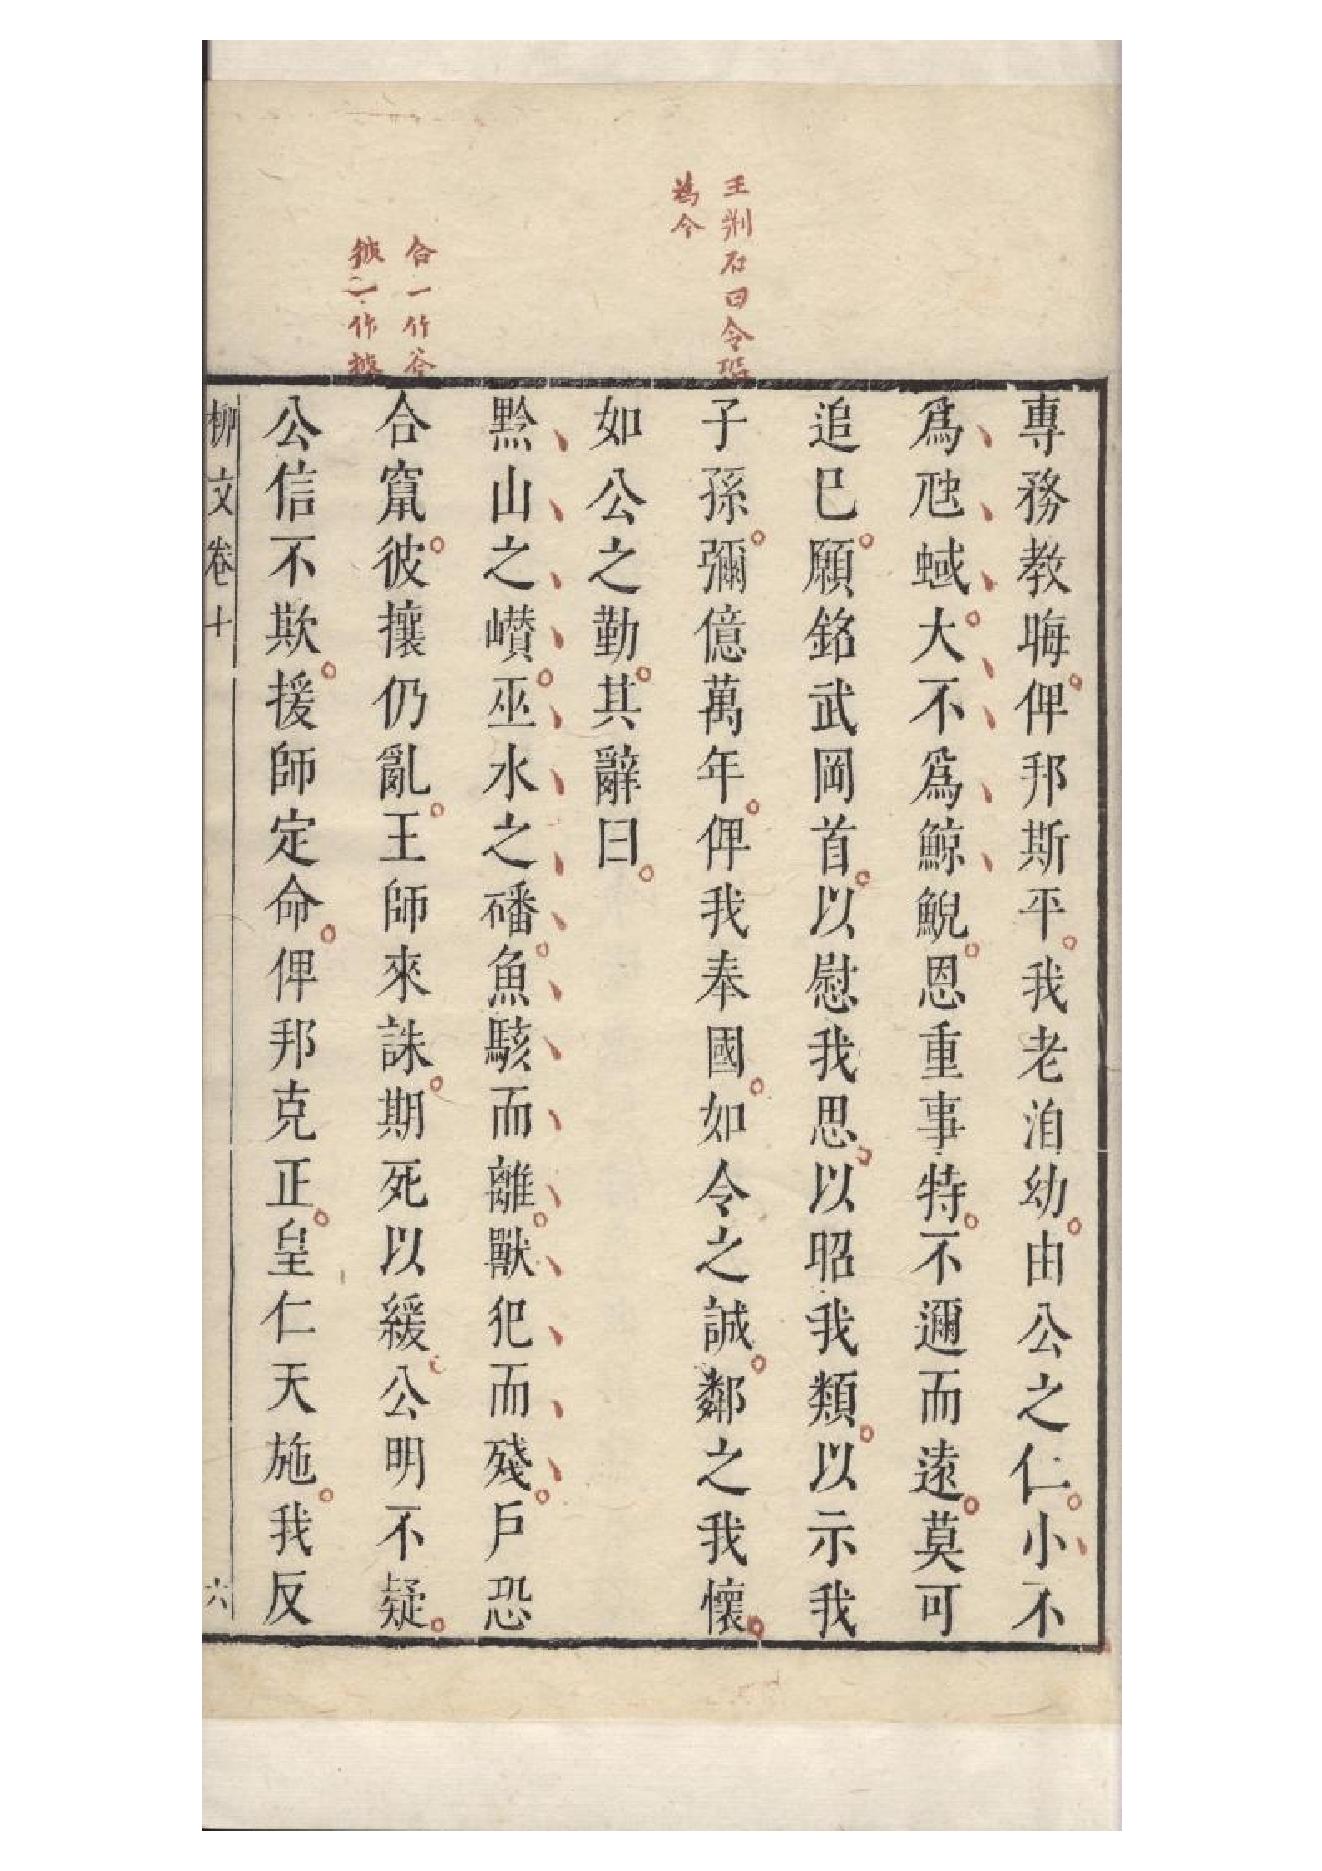 王荆石曰令
為今
合一作荅
一作
專務教晦俾邦斯平我老洎幼由公之仁小不
爲虺蜮大不爲鯨鯢恩重事特不邇而遠莫可
追巳願銘武岡首以慰我思以昭我類以示我
子孫彌億萬年俾我奉國如令之誠鄰之我懷
如公之勤其辭曰
黔山之巑巫水之磻魚駭而離獸犯而殘戶恐
合竄彼攘仍亂王師來誅期死以緩公明不疑
公信不欺援師定命俾邦克正皇仁天施我反
柳文卷十 六